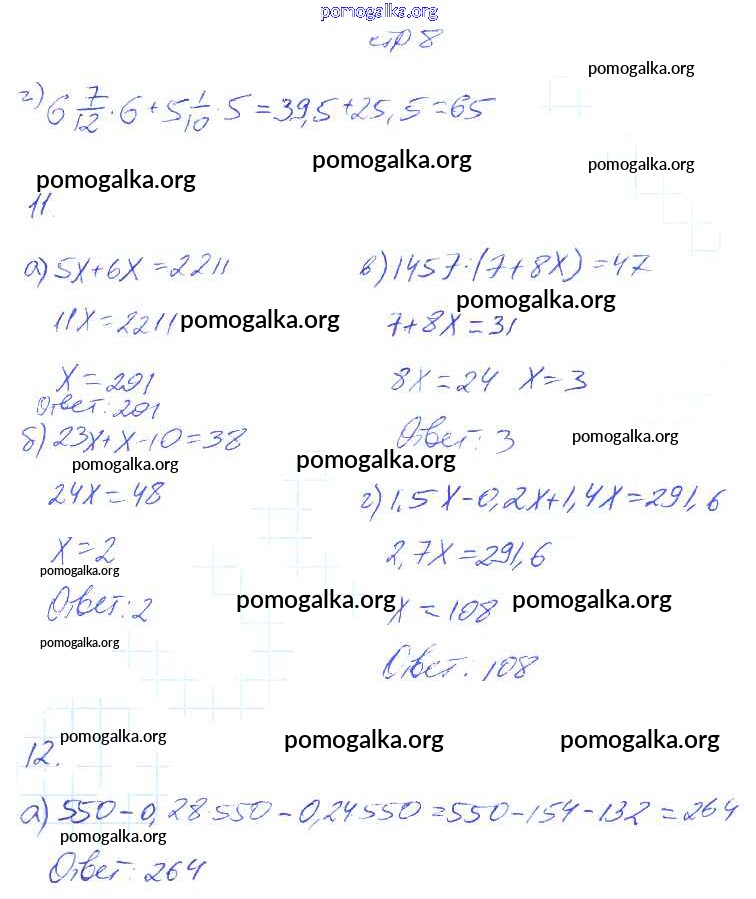 pomogalka.org
стр 8
pomogalka.org
г) 6 7/12 · 6 + 5 1/10 · 5 = 39,5 + 25,5 = 65
pomogalka.org pomogalka.org
pomogalka.org
11.
а) 5x + 6x = 2211
11x = 2211 pomogalka.org
x = 201
Ответ: 201
б) 23x + x - 10 = 38
pomogalka.org
24x = 48
x = 2
pomogalka.org
Ответ: 2
pomogalka.org
в) 1457 : (7 + 8x) = 47
pomogalka.org
7 + 8x = 31
8x = 24 x = 3
Ответ: 3 pomogalka.org
pomogalka.org
г) 1,5x - 0,2x + 1,4x = 291,6
2,7x = 291,6
pomogalka.org x = 108 pomogalka.org
Ответ: 108
12. pomogalka.org pomogalka.org pomogalka.org
а) 550 - 0,28·550 - 0,24 550 = 550 - 154 - 132 = 264
pomogalka.org
Ответ: 264